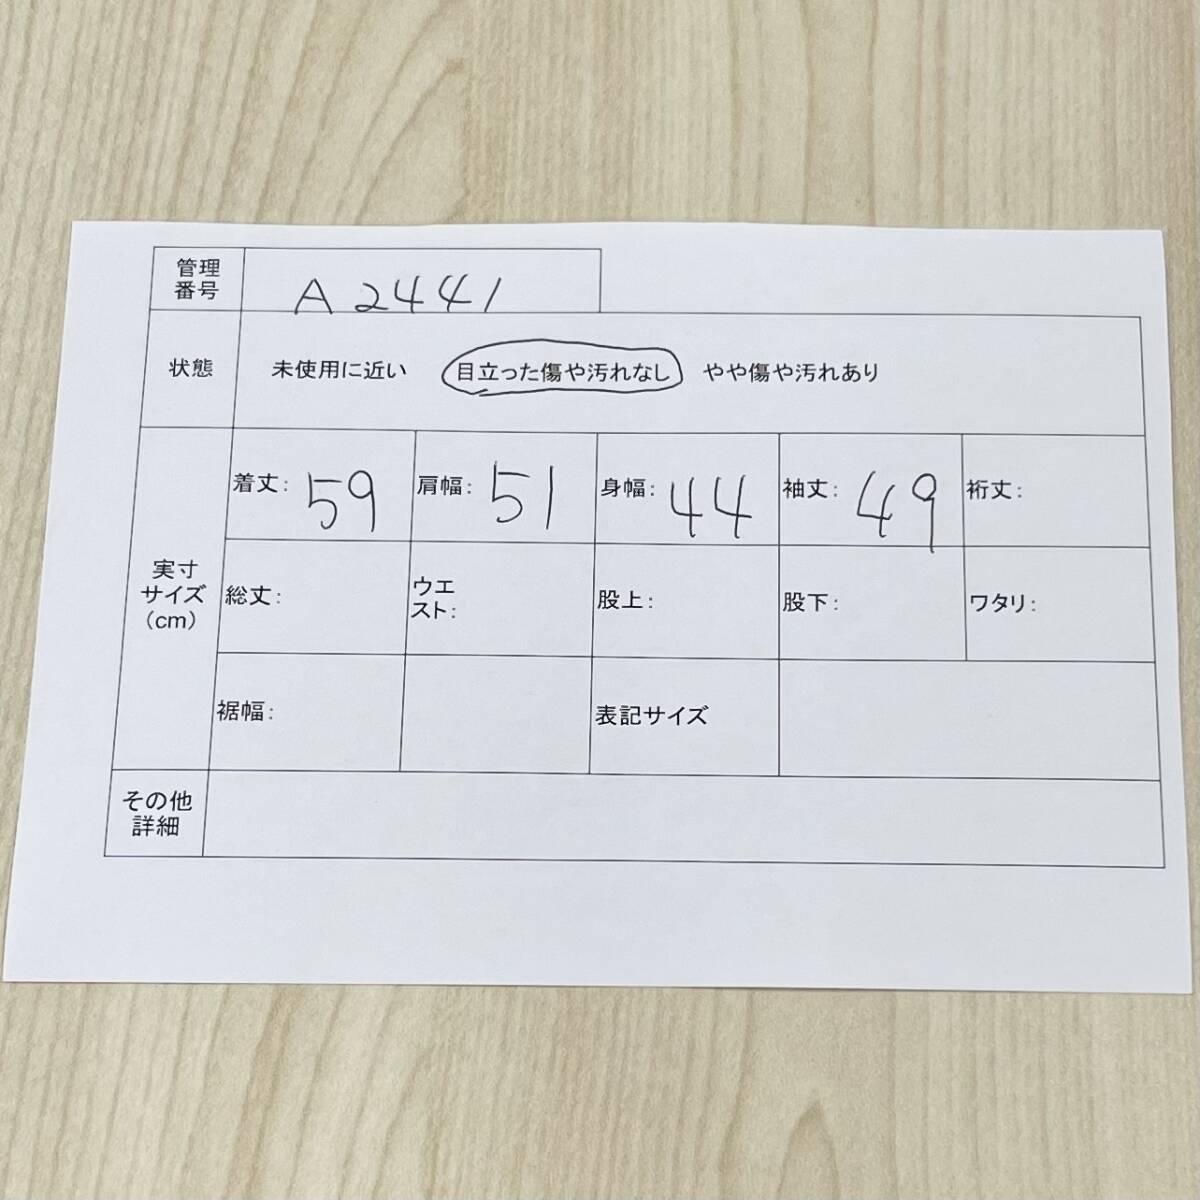 管理
番号
A2441
状態
未使用に近い 目立った傷や汚れなし やや傷や汚れあり
実寸
サイズ
（cm）
着丈： 59 肩幅： 51 身幅： 44 袖丈： 49 裄丈：
総丈： ウエ
スト： 股上： 股下： ワタリ：
裾幅： 表記サイズ
その他
詳細